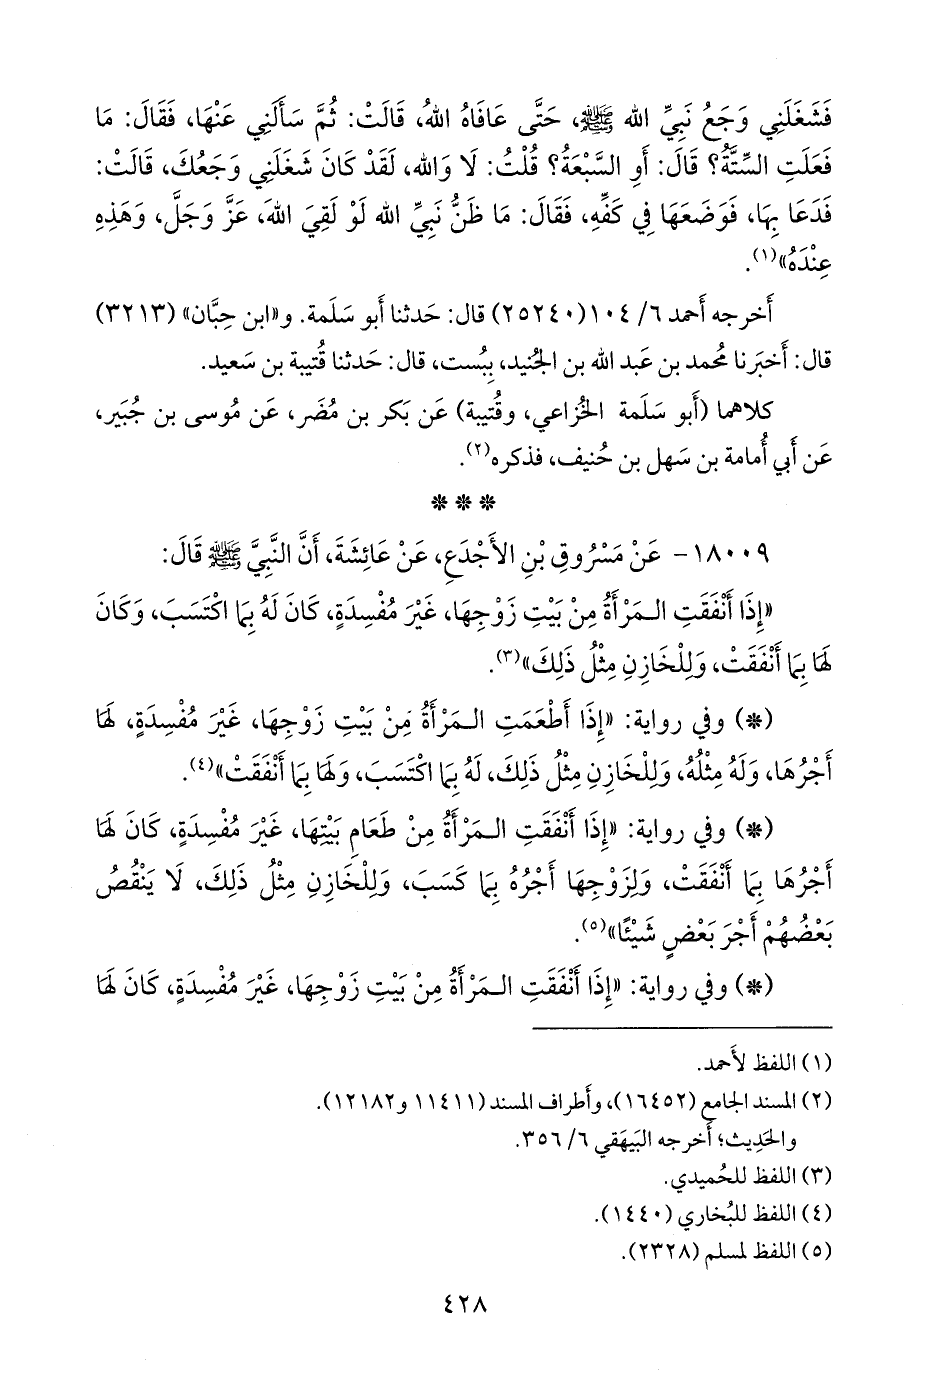 فَشَغَلَنِي وَجَعُ نَبِيِّ الله ﷺ، حَتَّى عَافَاهُ اللهُ، قَالَتْ: ثُمَّ سَأَلَنِي عَنْهَا، فَقَالَ: مَا
فَعَلَتِ السِّتَّةُ؟ قَالَ: أَوِ السَّبْعَةُ؟ قُلْتُ: لَا وَالله، لَقَدْ كَانَ شَغَلَنِي وَجَعُكَ، قَالَتْ:
فَدَعَا بِهَا، فَوَضَعَهَا فِي كَفِّهِ، فَقَالَ: مَا ظَنُّ نَبِيِّ الله لَوْ لَقِيَ اللهَ، عَزَّ وَجَلَّ، وَهَذِهِ
عِنْدَهُ»(١).
أَخرجه أَحمد ٦/ ١٠٤(٢٥٢٤٠) قال: حَدثنا أَبو سَلَمة. و«ابن حِبَّان» (٣٢١٣)
قال: أَخبَرنا مُحمد بن عَبد الله بن الجُنيد، ببُست، قال: حَدثنا قُتيبة بن سَعيد.
كلاهما (أَبو سَلَمة الخُزاعي، وقُتيبة) عَن بَكر بن مُضَر، عَن مُوسى بن جُبَير،
عَن أَبي أُمامة بن سَهل بن حُنيف، فذكره(٢).
* * *
١٨٠٠٩- عَنْ مَسْرُوقِ بْنِ الأَجْدَعِ، عَنْ عَائِشَةَ، أَنَّ النَّبِيَّ ﷺ قَالَ:
«إِذَا أَنْفَقَتِ المَرْأَةُ مِنْ بَيْتِ زَوْجِهَا، غَيْرَ مُفْسِدَةٍ، كَانَ لَهُ بِمَا اكْتَسَبَ، وَكَانَ
لَهَا بِمَا أَنْفَقَتْ، وَلِلْخَازِنِ مِثْلُ ذَلِكَ»(٣).
(*) وفي رواية: «إِذَا أَطْعَمَتِ المَرْأَةُ مِنْ بَيْتِ زَوْجِهَا، غَيْرَ مُفْسِدَةٍ، لَهَا
أَجْرُهَا، وَلَهُ مِثْلُهُ، وَلِلْخَازِنِ مِثْلُ ذَلِكَ، لَهُ بِمَا اكْتَسَبَ، وَلَهَا بِمَا أَنْفَقَتْ»(٤).
(*) وفي رواية: «إِذَا أَنْفَقَتِ المَرْأَةُ مِنْ طَعَامِ بَيْتِهَا، غَيْرَ مُفْسِدَةٍ، كَانَ لَهَا
أَجْرُهَا بِمَا أَنْفَقَتْ، وَلِزَوْجِهَا أَجْرُهُ بِمَا كَسَبَ، وَلِلْخَازِنِ مِثْلُ ذَلِكَ، لَا يَنْقُصُ
بَعْضُهُمْ أَجْرَ بَعْضٍ شَيْئًا»(٥).
(*) وفي رواية: «إِذَا أَنْفَقَتِ المَرْأَةُ مِنْ بَيْتِ زَوْجِهَا، غَيْرَ مُفْسِدَةٍ، كَانَ لَهَا
(١) اللفظ لأَحمد.
(٢) المسند الجامع (١٦٤٥٢)، وأَطراف المسند (١١٤١١ و١٢١٨٢).
والحَدِيث؛ أَخرجه البَيهَقي ٦/ ٣٥٦.
(٣) اللفظ للحُميدي.
(٤) اللفظ للبُخاري (١٤٤٠).
(٥) اللفظ لمسلم (٢٣٢٨).
٤٢٨